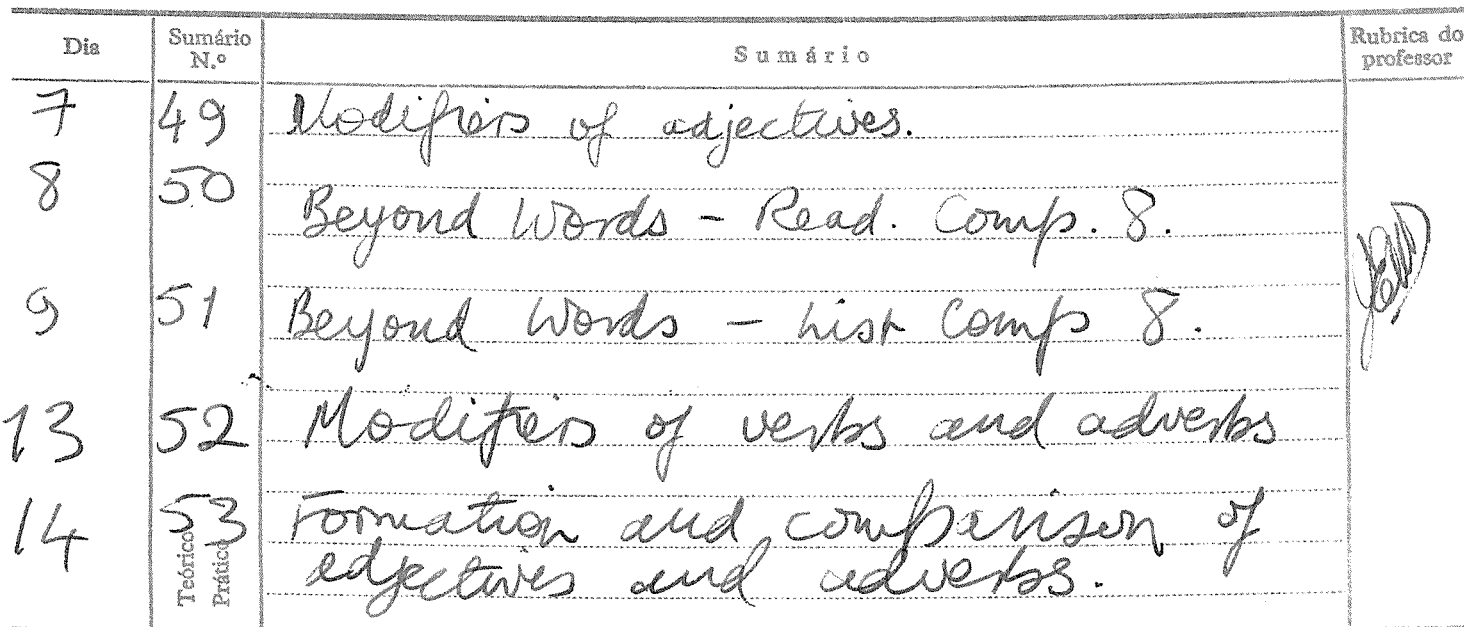 Dia Sumário N.º Sumário Rubrica do professor
7 49 Modifiers of adjectives.
8 50 Beyond Words - Read. Comp. 8.
9 51 Beyond Words - List Comp 8.
13 52 Modifiers of verbs and adverbs
14 53 Formation and comparison of
adjectives and adverbs.
Teórico
Prático